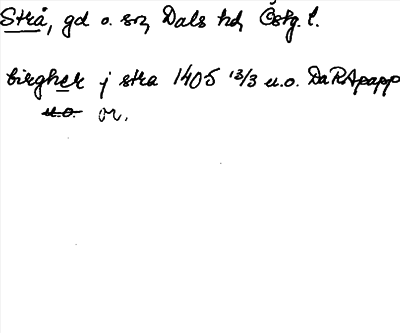 Strå, gd o. sn, Dals hd, Östg. l.
birgher j stra 1405 13/3 u.o. DaRApapp
u.o. or.